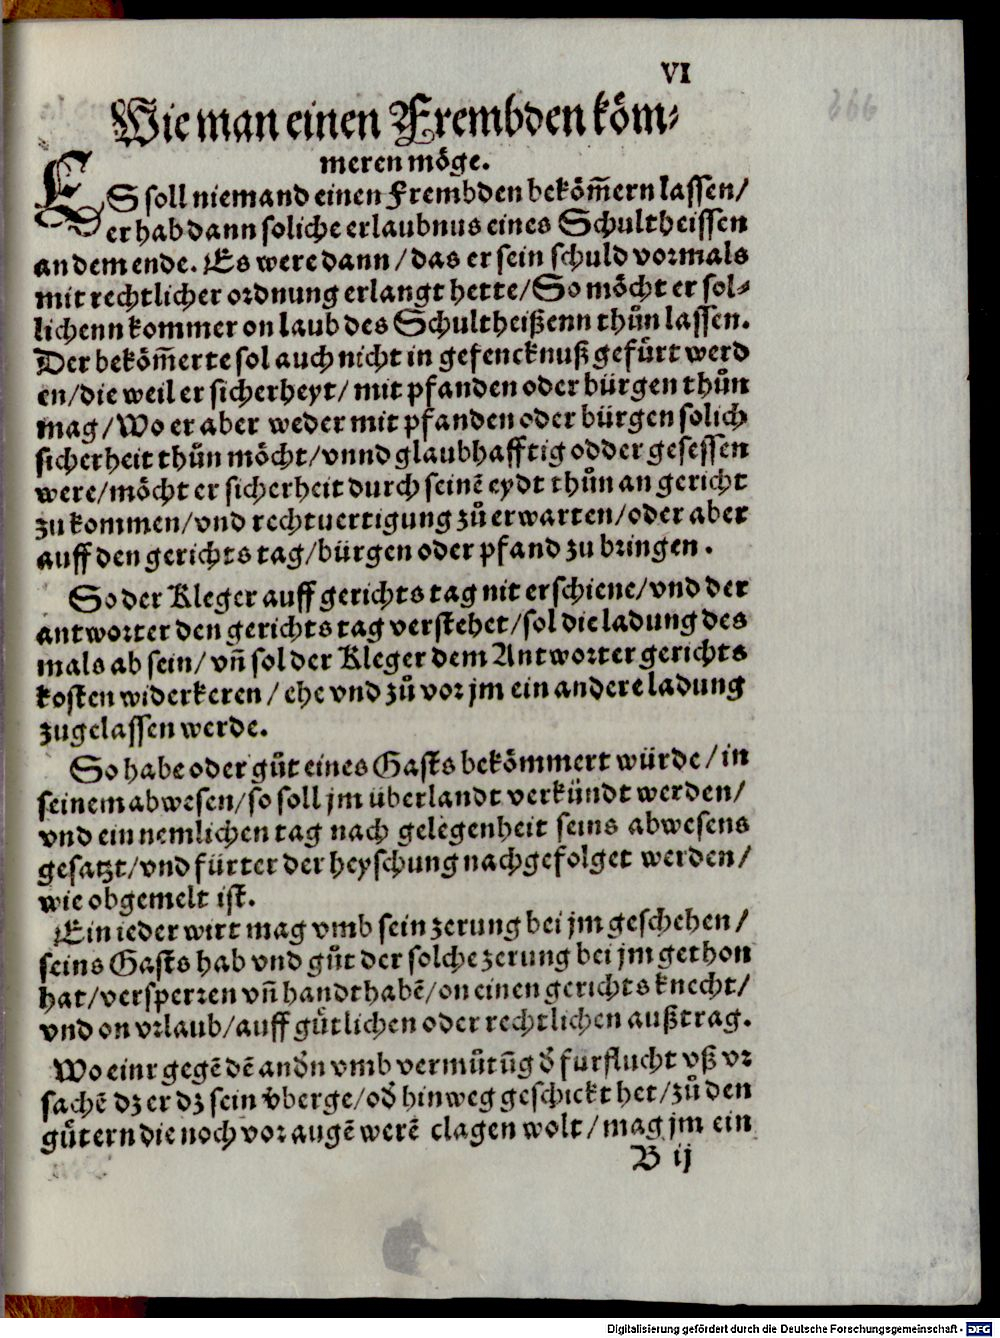 VI
Wie man einen Frembden köm⸗
meren möge.
ES soll niemand einen Frembden bekom̄ern lassen/
er hab dann soliche erlaubnus eines Schultheissen
an dem ende. Es were dann/das er sein schuld vormals
mit rechtlicher ordnung erlangt hette/So möcht er sol⸗
lichenn kommer on laub des Schultheißenn thůn lassen.
Der beköm̄erte sol auch nicht in gefencknuß gefürt werd
en/die weil er sicherheyt/ mit pfanden oder bürgen thůn
mag/Wo er aber weder mit pfanden oder bürgen solich
sicherheit thůn möcht/vnnd glaubhafftig odder gesessen
were/möcht er sicherheit durch seinē eydt thůn an gericht
zu kommen/vnd rechtuertigung zů erwarten/oder aber
auff den gerichts tag/bürgen oder pfand zu bringen.
So der Kleger auff gerichts tag nit erschiene/vnd der
antworter den gerichts tag verstehet/sol die ladung des
mals ab sein/ vn̄ sol der Kleger dem Antworter gerichts
kosten widerkeren/ ehe vnd zů vor jm ein andere ladung
zugelassen werde.
So habe oder gůt eines Gasts bekömmert würde/in
seinem abwesen/so soll jm überlandt verkündt werden/
vnd ein nemlichen tag nach gelegenheit seins abwesens
gesatzt/vnd fürter der heyschung nachgefolget werden/
wie obgemelt ist.
Ein ieder wirt mag vmb sein zerung bei jm geschehen/
seins Gasts hab vnd gůt der solche zerung bei jm gethon
hat/versperren vn̄ handthabē/on einen gerichts knecht/
vnd on vrlaub/auff gütlichen oder rechtlichen außtrag.
Wo einr gegē dē andn̄ vmb vermůtūg d̄ furflucht vß vr
sachē dz er dz sein v̈berge/od̄ hinweg geschickt het/zů den
gütern die noch vor augē werē clagen wolt/mag jm ein
B ij
Digitalisierung gefördert durch die Deutsche Forschungsgemeinschaft - DFG